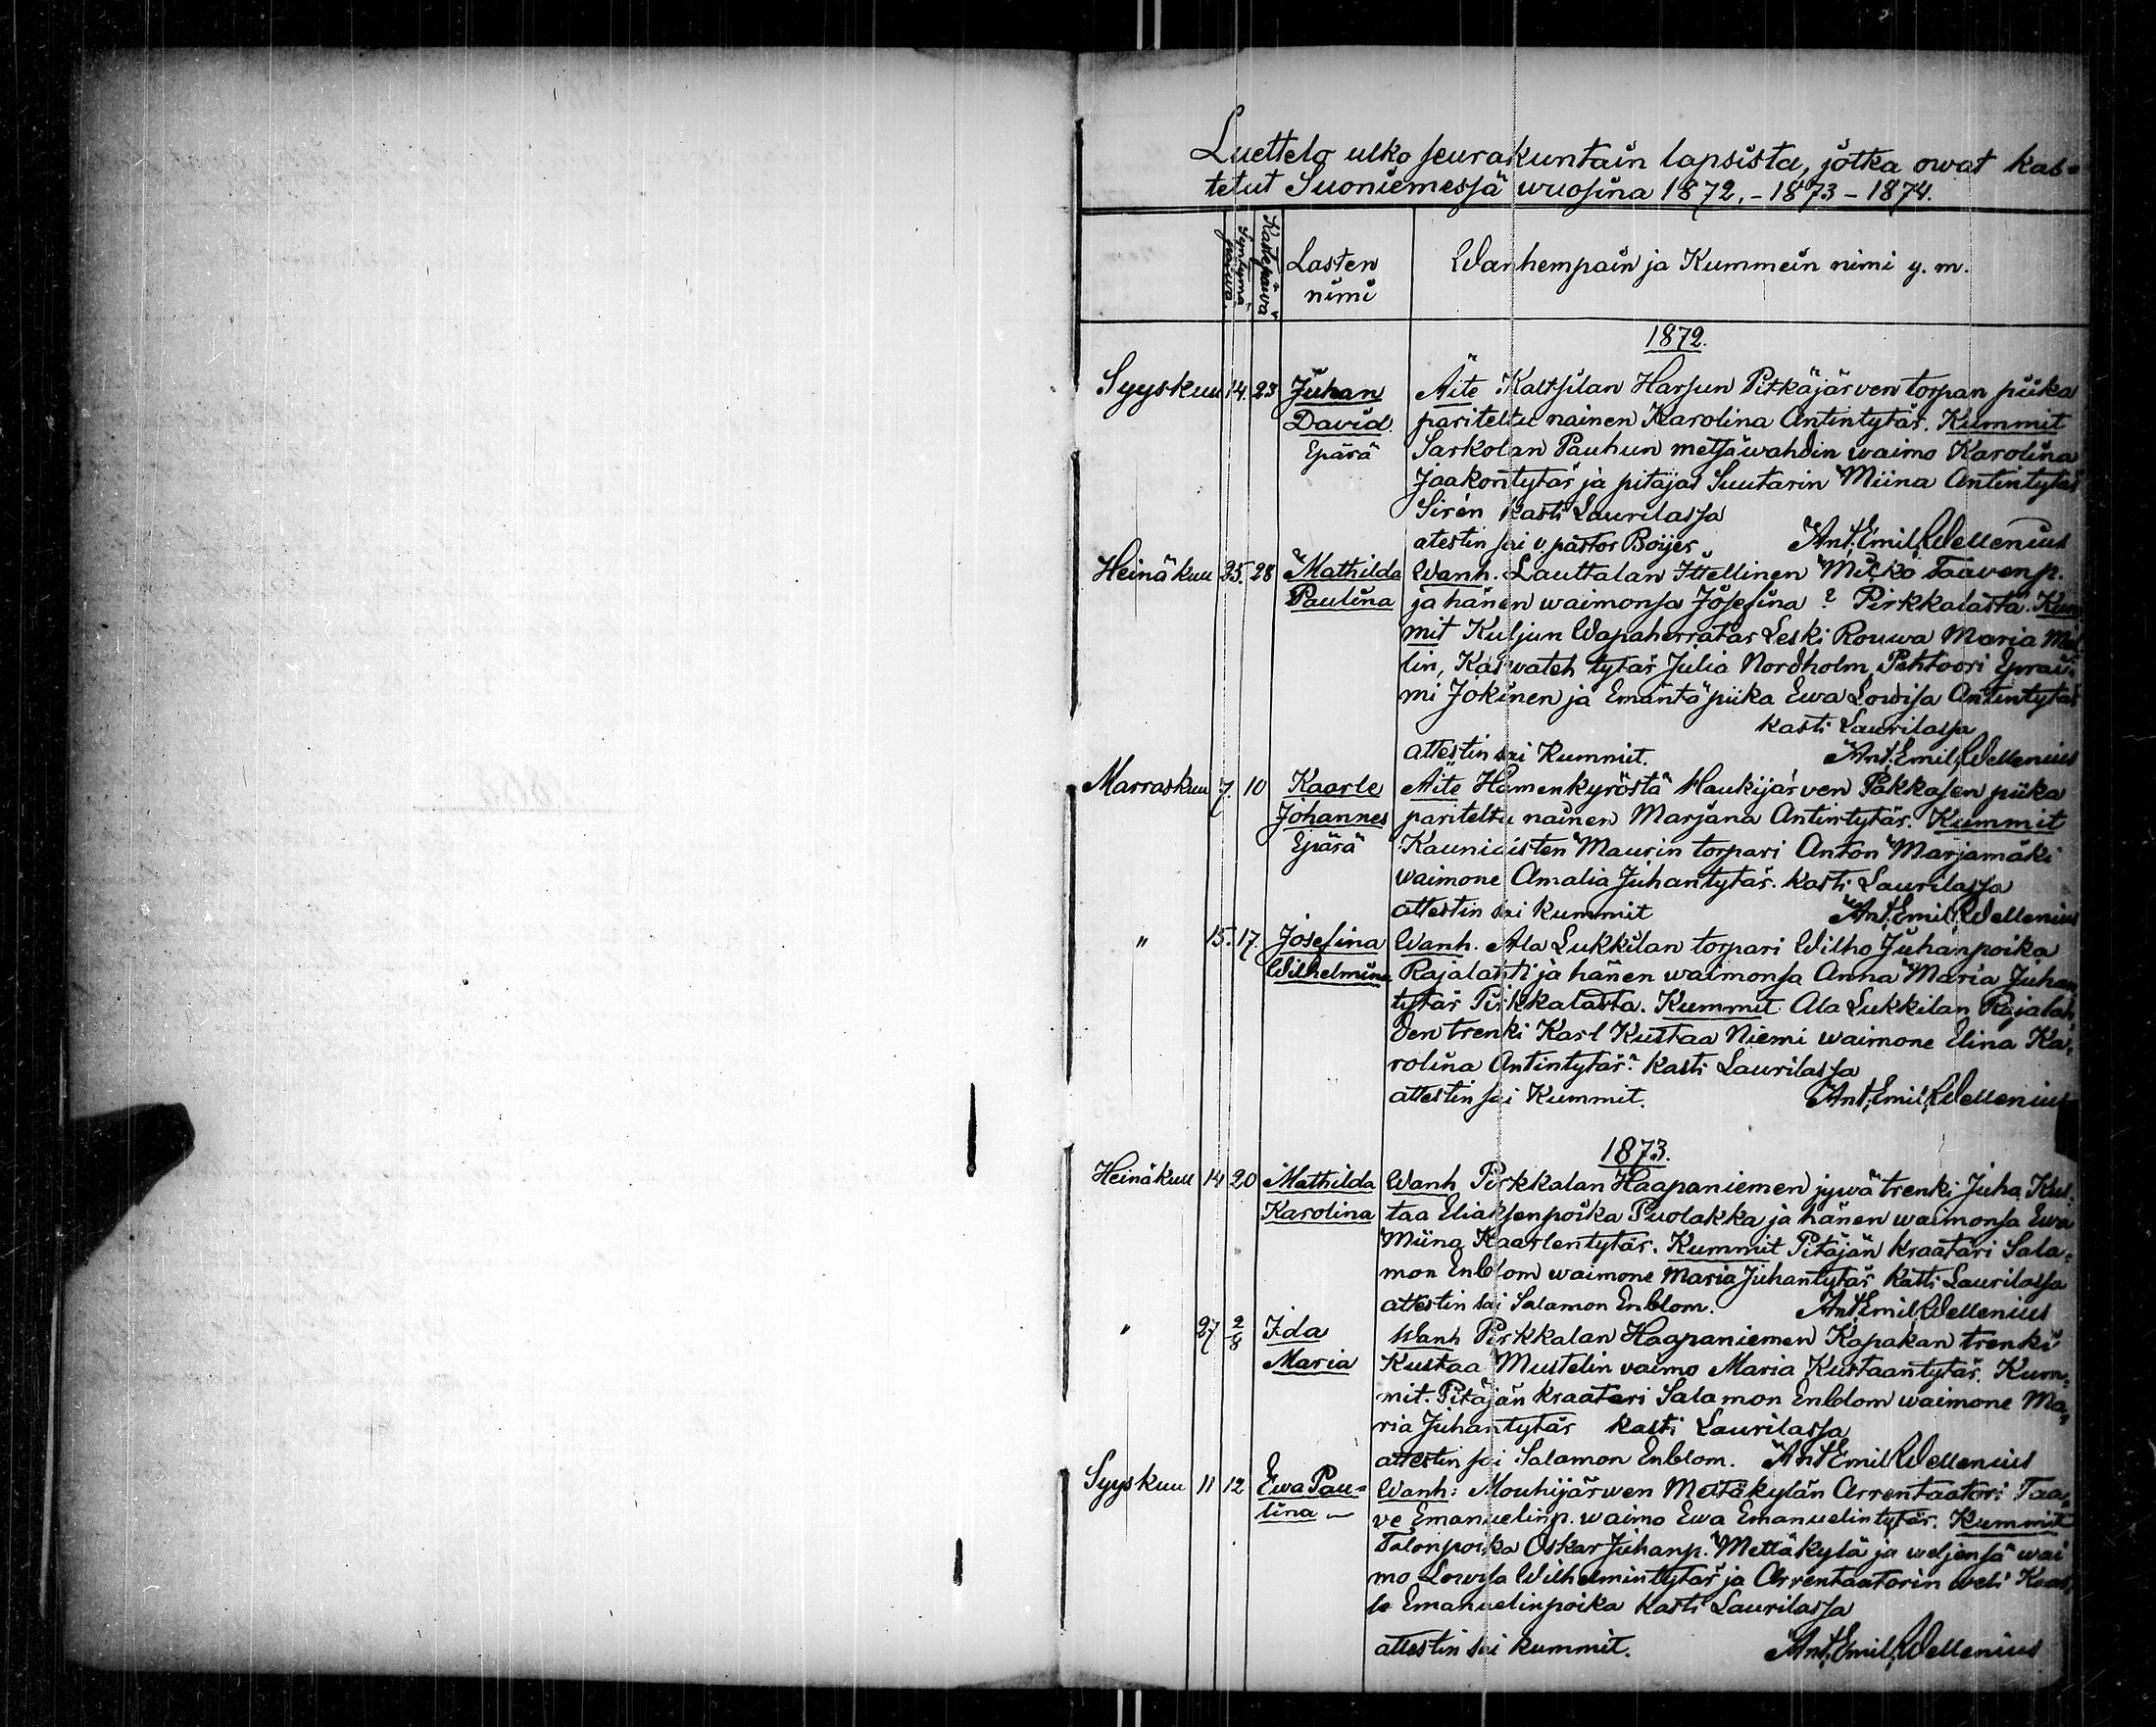 Luettelo ulko seurakuntain lapsista, jotka owat kas=
tetut Suoniemessä wuosina 1872.-1873-1874.
Syntymä päiwä
Kastepäiwä
Lasten nimi
Wanhempain ja Kummein nimi y. m.
1872.
Syyskuu 14. 23 Juhan Äite Kaltsilan Harjun Pitkäjärven torpan piika
David pariteltu nainen Karolina Antintytär. Kummit
Epärä Sarkolan Pauhun metsäwahdin waimo Karolina
Jaakontytär ja pitäjas Suutarin Miina Antintytär
Sirén kasti Laurilassa
atestin sai v. pastor Boijer Ant. Emil Wellenius
Heinäkuu 25. 28 Mathilda Wanh. Lauttalan Ittellinen Micko Taavenp.
Paulina ja hänen waimonsa Josefina ? Pirkkalasta. Kum
mit Kuljun Wapaherratar Leski Rouwa Maria
lin, Kaswateh tytär Julia Nordholm, Pehtoori Eprai=
mi Jokinen ja Emäntäpiika Ewa Lowisa Antintytär
kasti Laurilassa
attestin sai Kummit. Ant. Emil Wellenius
Marraskuu 7. 10 Kaarle Äite Hämenkyröstä Haukijärven Pakkasen piika
Johannes pariteltu nainen Marjana Antintytär. Kummit
Epärä Kauniaisten Maurin torpari Anton Marjamäki
waimone Amalia Juhantytär. kasti Laurilassa
attestin sai kummit Ant. Emil Wellenius
" 15. 17. Josefina Wanh. Ala Lukkilan torpari Wilho Juhanpoika
Wilhelmina Rajalahti ja hänen waimonsa Anna Maria Juhan
tytär Pirkkalasta. Kummit Ala Lukkilan Rajalah
den trenki Karl Kustaa Niemi waimone Elina Ka=
rolina Antintytär? kasti Laurilassa
attestin sai Kummit. Ant. Emil Wellenius
1873.
Heinäkuu 14 20 Mathilda Wanh Pirkkalan Haapaniemen jywä trenki Juha Kus
Karolina taa Eliaksenpoika Puolakka ja hänen waimonsa Ewa
Miina Kaarlentytär. Kummit Pitäjän kraatari Sala=
mon Enblom waimone Maria Juhantytär kasti Laurilassa
attestin sai Salamon Enblom. Ant. Emil Wellenius
" 27 2/8 Ida Wanh Pirkkalan Haapaniemen Kapakan trenki
Maria Kustaa Mustelin vaimo Maria Kustaantytär. Kum=
mit. Pitäjän kraatari Salamon Enblom waimone Ma=
ria Juhantytär kasti Laurilassa
attestin sai Salamon Enblom. Ant Emil Wellenius
Syyskuu 11 12 Ewa Pau= Wanh: Mouhijärwen Mettäkylän Arrentaatori Taa=
lina ve Emanuelinp. waimo Ewa Emanuelintytär. Kummit
Talonpoika Oskar Juhanp. Mettäkylä ja weljensä wai
mo Lowisa Wilhelmintytär ja Arrentaatorin weli Kaar
le Emanuelinpoika kasti Laurilassa
attestin sai kummit. Ant. Emil Wellenius